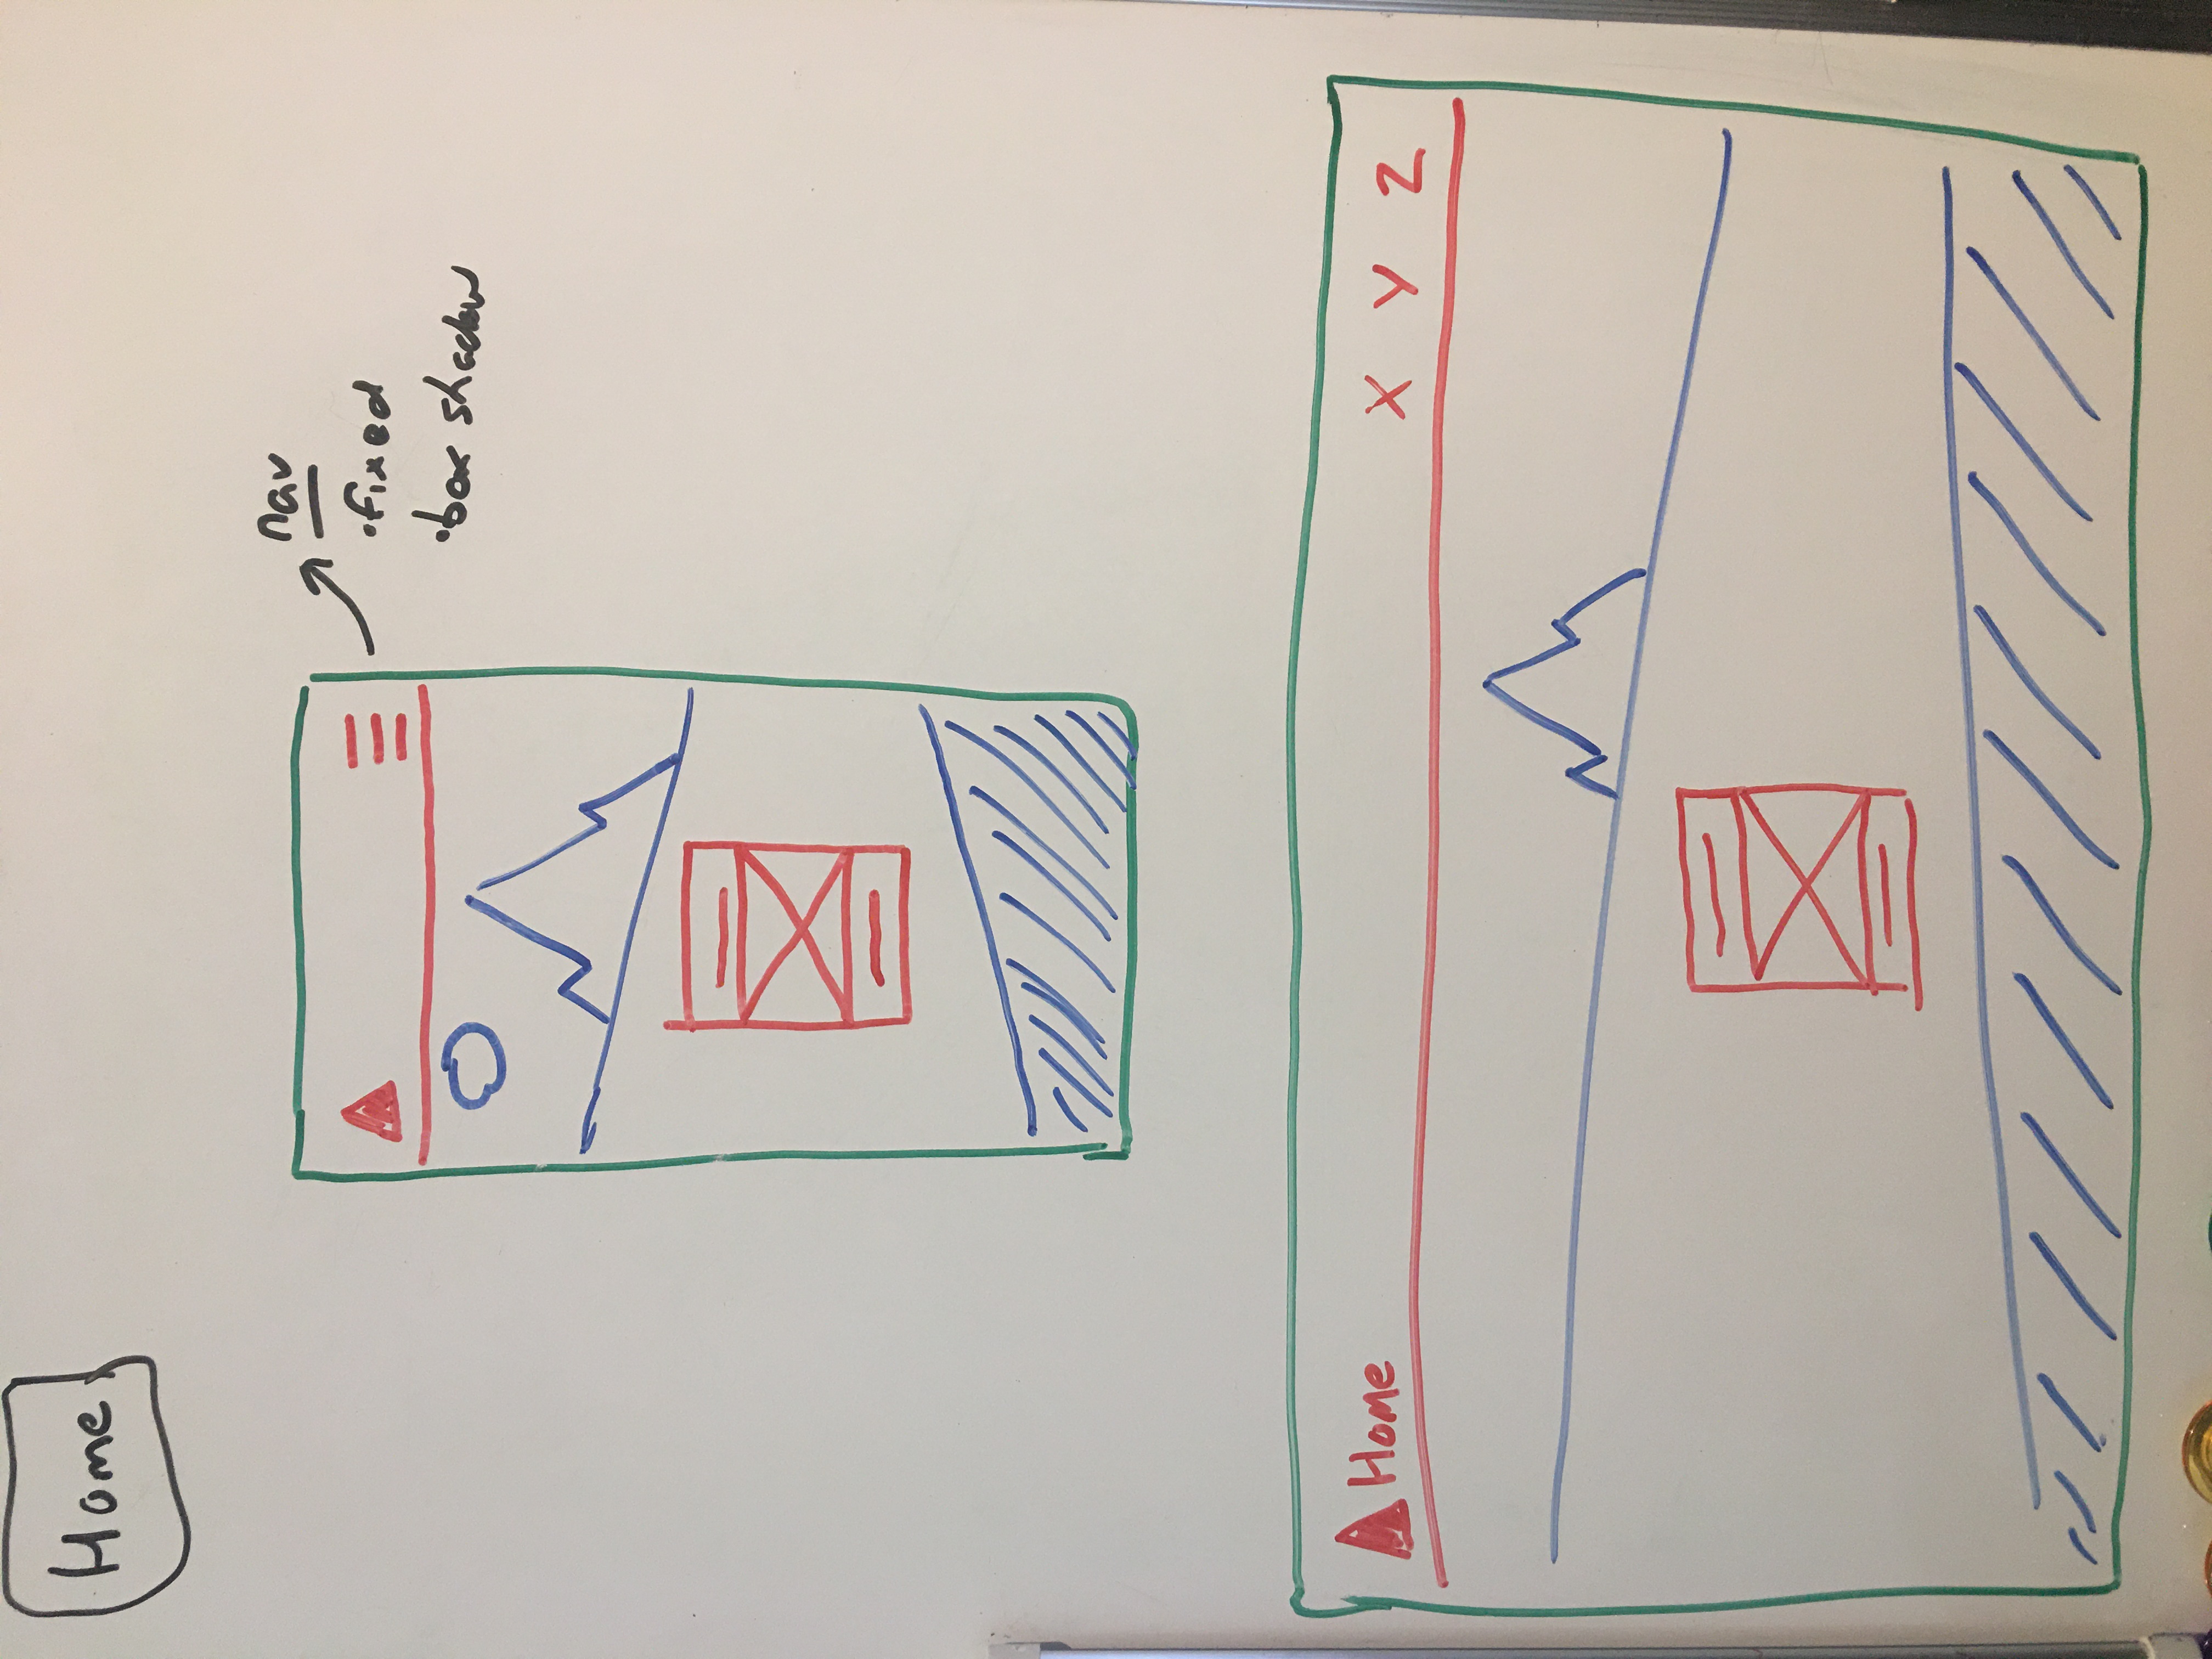 Home
nav
• fixed
• box shadow
Home X Y Z